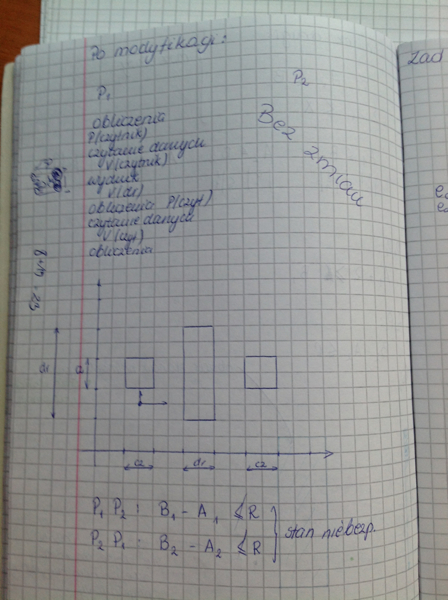 Po modyfikacji:
P1 P2
obliczenia
P(czytnik)
czytanie danych
V(czytnik)
wydruk
V(dr)
obliczenia P(czyt)
czytanie danych
V(czyt)
obliczenia
Bez zmian
Zad
cz d1 cz
P1 P2 : B1 - A1 ≤ R
P2 P1 : B2 - A2 ≤ R
stan niebezp.